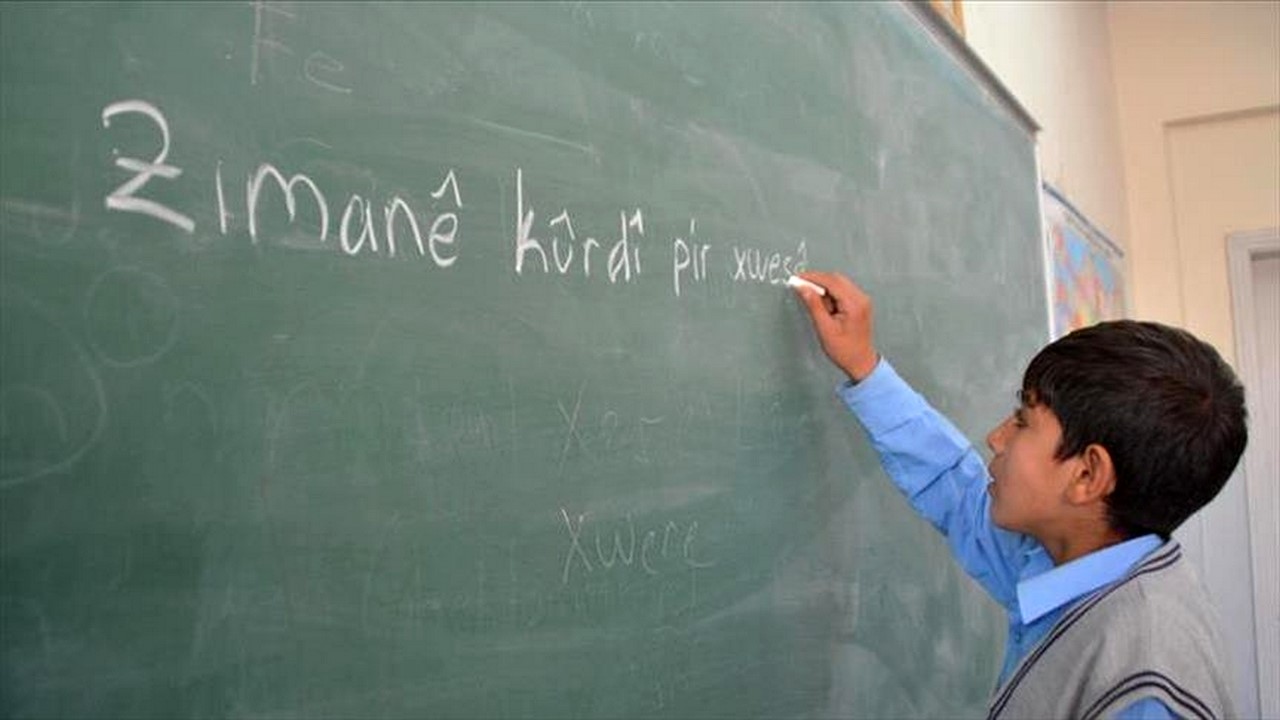 Fe
Zimanê kûrdî pir xweşê
Xwere